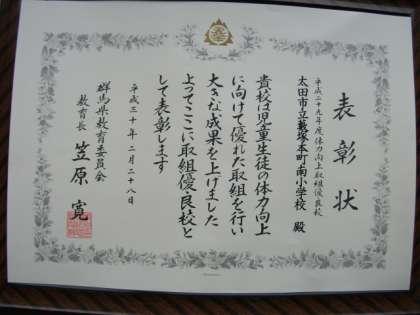 表彰状
平成二十九年度体力向上取組優良校
太田市立藪塚本町南小学校 殿
貴校は児童生徒の体力向上
に向けて優れた取組を行い
大きな成果を上げました
よってここに取組優良校と
して表彰します
平成三十年二月二十八日
群馬県教育委員会
教育長 笠原 寛